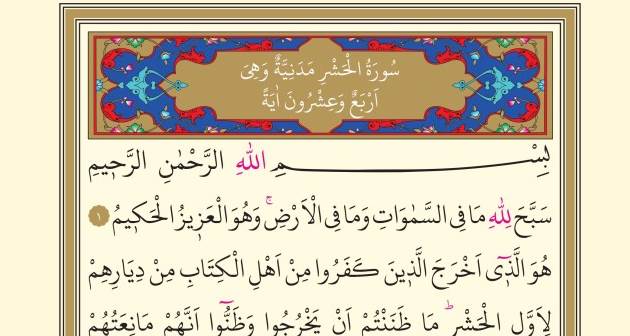 سُورَةُ الْحَشْرِ مَدَنِيَّةٌ وَهِيَ
اَرْبَعٌ وَعِشْرُونَ اٰيَةً
بِسْمِ اللّٰهِ الرَّحْمٰنِ الرَّحٖيمِ
سَبَّحَ لِلّٰهِ مَا فِى السَّمٰوَاتِ وَمَا فِى الْاَرْضِۚ وَهُوَ الْعَزٖيزُ الْحَكٖيمُ ١
هُوَ الَّذٖٓى اَخْرَجَ الَّذٖينَ كَفَرُوا مِنْ اَهْلِ الْكِتَابِ مِنْ دِيَارِهِمْ
لِاَوَّلِ الْحَشْرِؕ مَا ظَنَنْتُمْ اَنْ يَخْرُجُوا وَظَنُّٓوا اَنَّهُمْ مَانِعَتُهُمْ